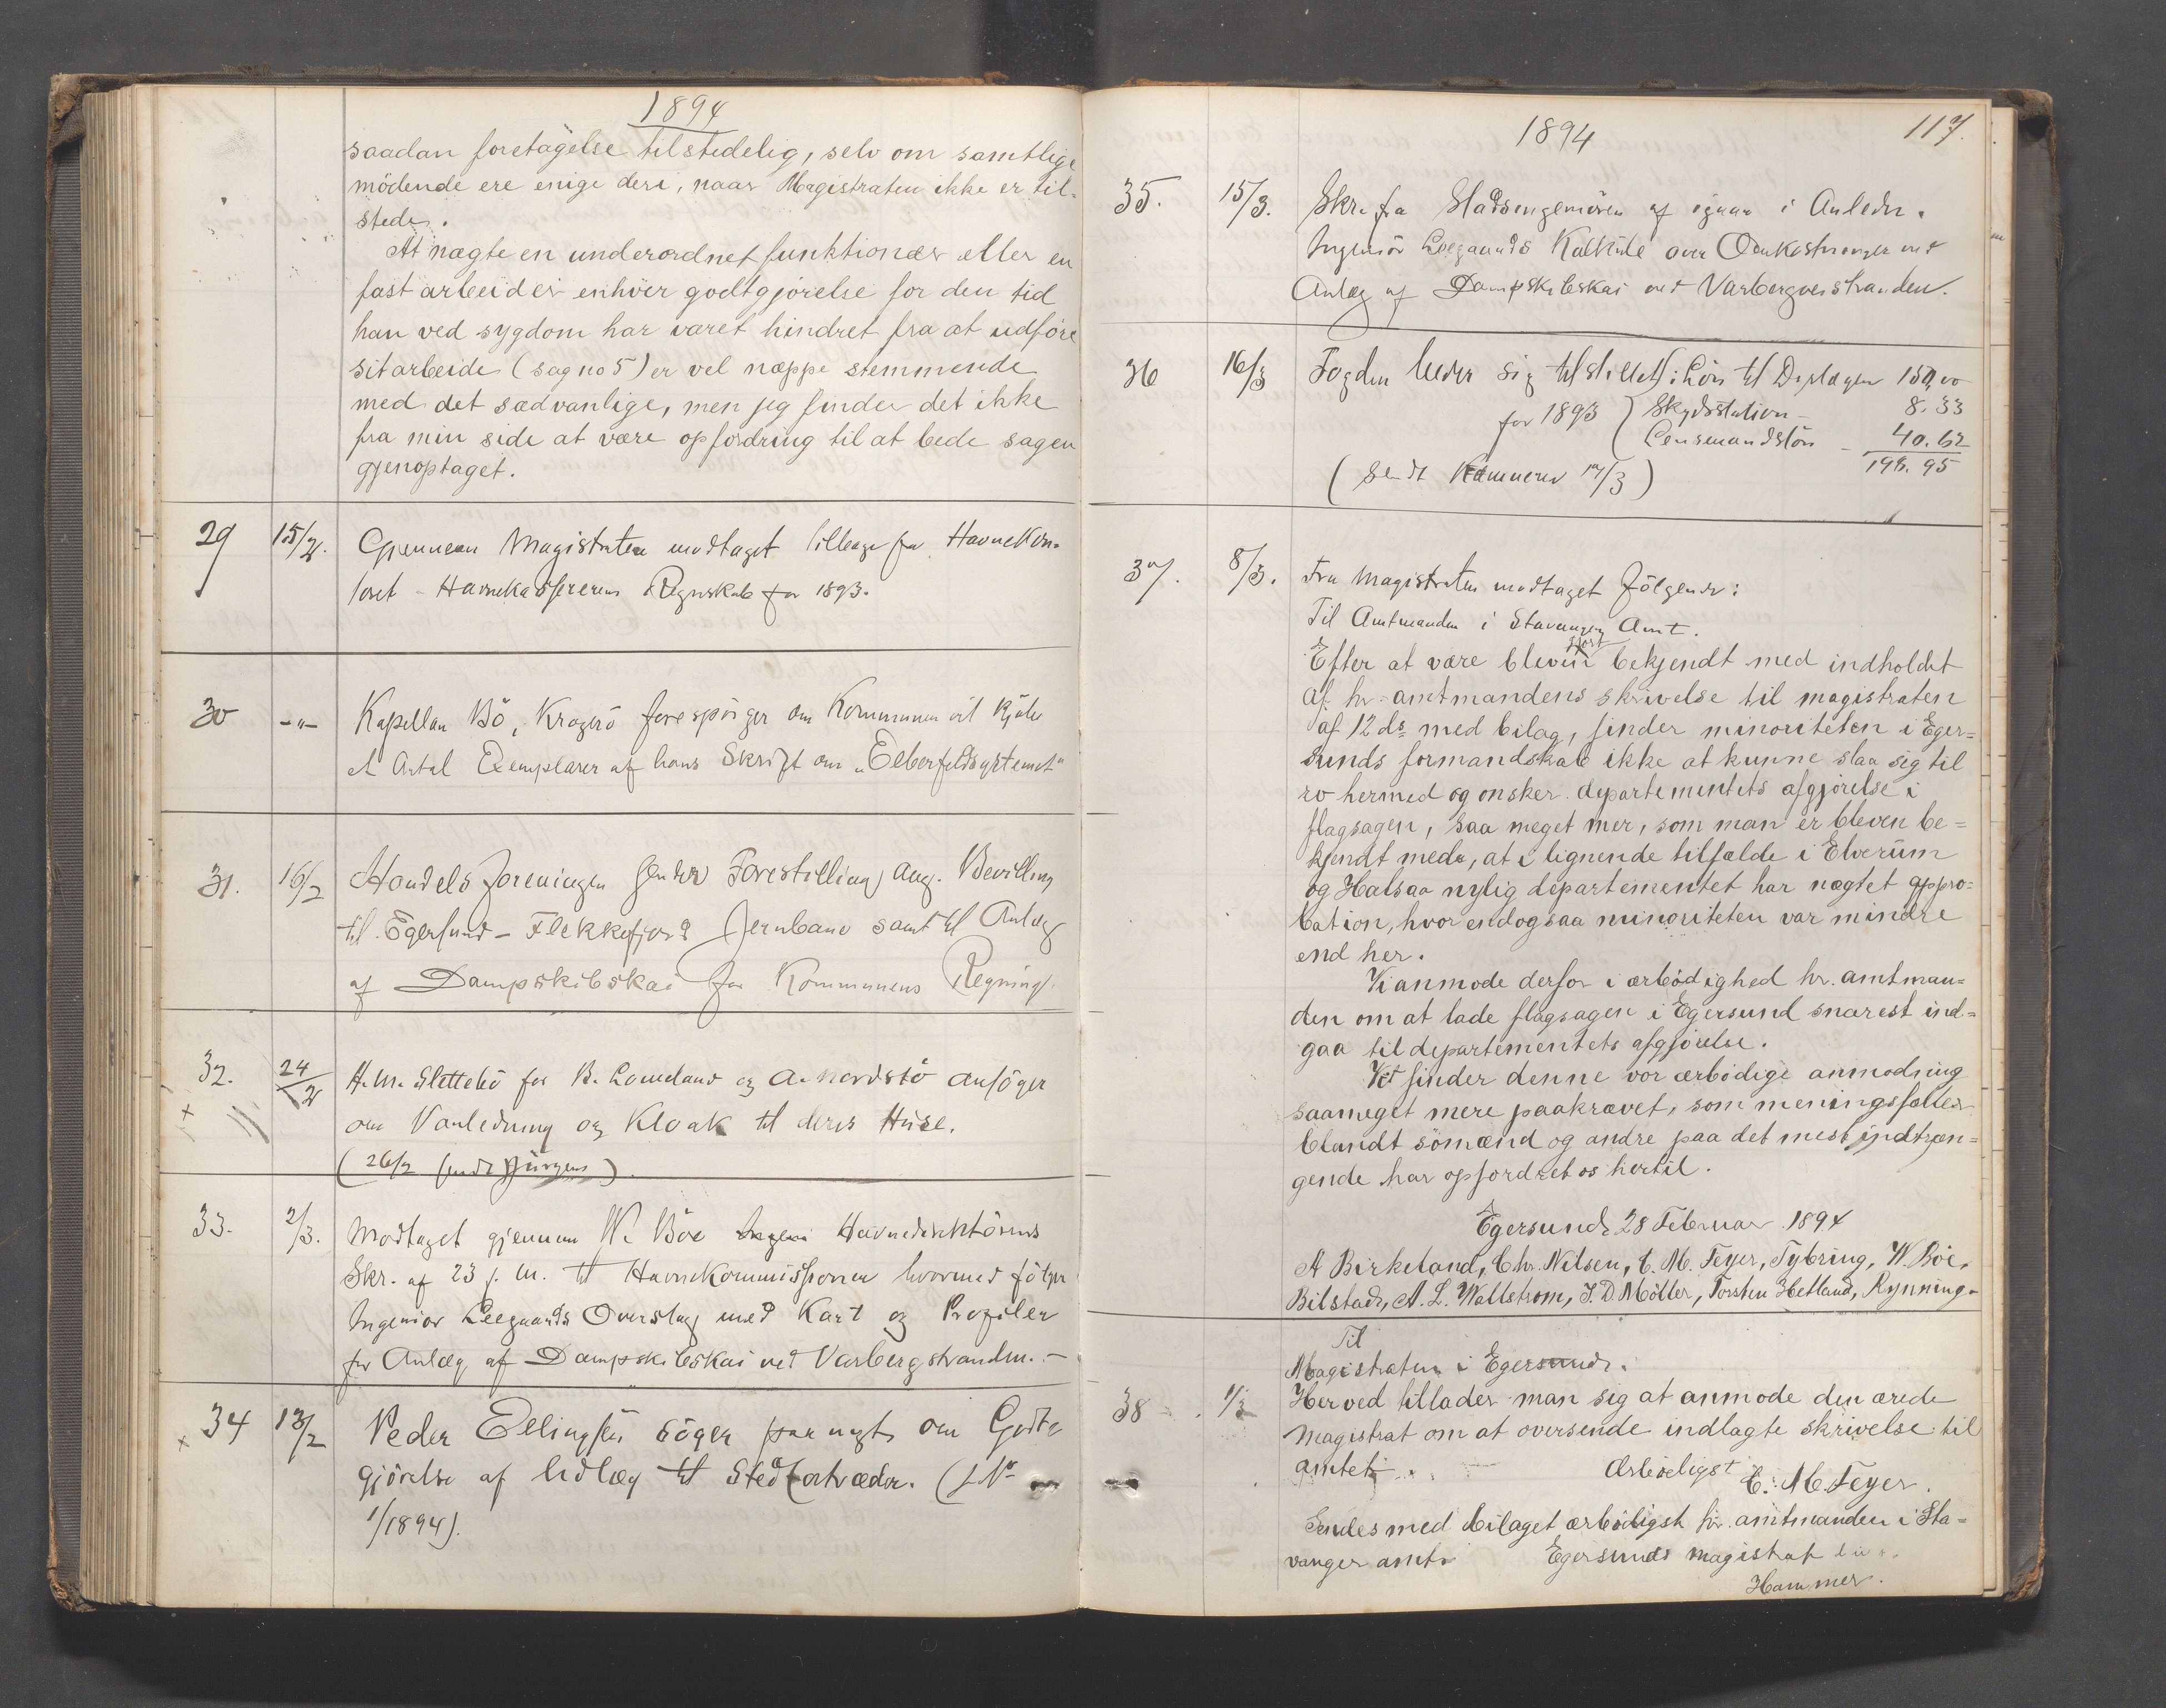 1894
saadan foretagelse tilstedelig, selv om samtlige
mödende ere enige deri, naar Magistraten ikke er til-
stede.
At nægte en underordnet funktionær eller en
fast arbeider enhver godtgjörelse for den tid
han ved sygdom har været hindret fra at udföre
sit arbeide (sag no 5) er vel næppe stemmende
med det sædvanlige, men jeg finder det ikke
fra min side at være opfordring til at bede sagen
gjenoptaget.
29 15/2. Gjennem Magistraten modtaget tilbage fra Havnekon-
toret - Havnekassererens Regnskab for 1893.
30 -"- Kapellan Bö, Kragerö forespörger om Kommunen vil kjöbe
et Antal Exemplarer af hans Skrift om "Elberfeldsystemet"
31. 16/2 Handelsforeningen sender Forestilling ang. Bevilling
til Egersund - Flekkefjord Jernbane samt til Anlæg
af Dampskibskai for Kommunens Regning.
32. 24/2 H. M. Slettebö for B. Lomeland og A. Nordstö ansöger
om Vandledning og Kloak til deres Huse.
(26/2 sendt Jürgens).
33. 2/3. Modtaget gjennem W. Böe Havnedirektörens
Skr. af 23 f. M. til Havnekommissionen hvormed fölger
Ingeniör Leegaards Overslag med Kart og Profiler
for Anlæg af Dampskibskai ved Varbergstranden. -
x 34 13/2 Peder Ellingsen söger paa nyt om Godt-
gjörelse af Udlæg til Stedfortræder. (J. No
1/1894).
1894 117.
35. 15/3. Skr. fra Stadsingeniören af igaar i Anledn.
Ingeniör Leegaards Kalkule over Omkostninger ved
Anlæg af Dampskibskai ved Varbergveistranden.
36 16/3 Fogden beder sig tilstillet i Lön til 150,00
for 1893 Skydsstation - 8.33
Lensmandslön - 40.62
198.95
(Sendt Kæmneren 17/3)
37. 8/3. Fra Magistraten modtaget fölgende:
Til Amtmanden i Stavanger Amt.
Efter at være bleven gjort bekjendt med indholdet
af hr. amtmandens skrivelse til magistraten
af 12 ds med bilag, finder minoriteten i Eger=
sunds formandskab ikke at kunne slaa sig til
ro hermed og onsker departementets afgjörelse i
flagsagen, saa meget mer, som man er bleven be=
kjendt med, at i lignende tilfælde i Elverum
og Halsaa nylig departementet har nægtet appro=
bation, hvor endogsaa minoriteten var mindre
end her.
Vi anmode derfor i ærbödighed hr. amtman=
den om at lade flagsagen i Egersund snarest ind=
gaa til departementets afgjörelse.
Vi finder denne vor ærbödige anmodning
saameget mere paakrævet, som meningsfæller
blandt sömænd og andre paa det mest indtræn=
gende har opfordret os hertil.
Egersund, 28 Februar 1894
A Birkeland, Chr. Nilsen, C. M. Feyer, Tybring, W. Böe,
Bilstad, A. L. Wallstrom, J. D. Möller, Torsten Hetland, Rynning.
Til
Magistraten i Egersund.
38 1/3 Herved tillader man sig at anmode den ærede
magistrat om at oversende indlagte skrivelse til
amtet. Ærbödigst C. M. Feyer.
Sendes med bilaget ærbödigst hr. amtmanden i Sta=
vanger amt. Egersunds magistrat
Hammer.